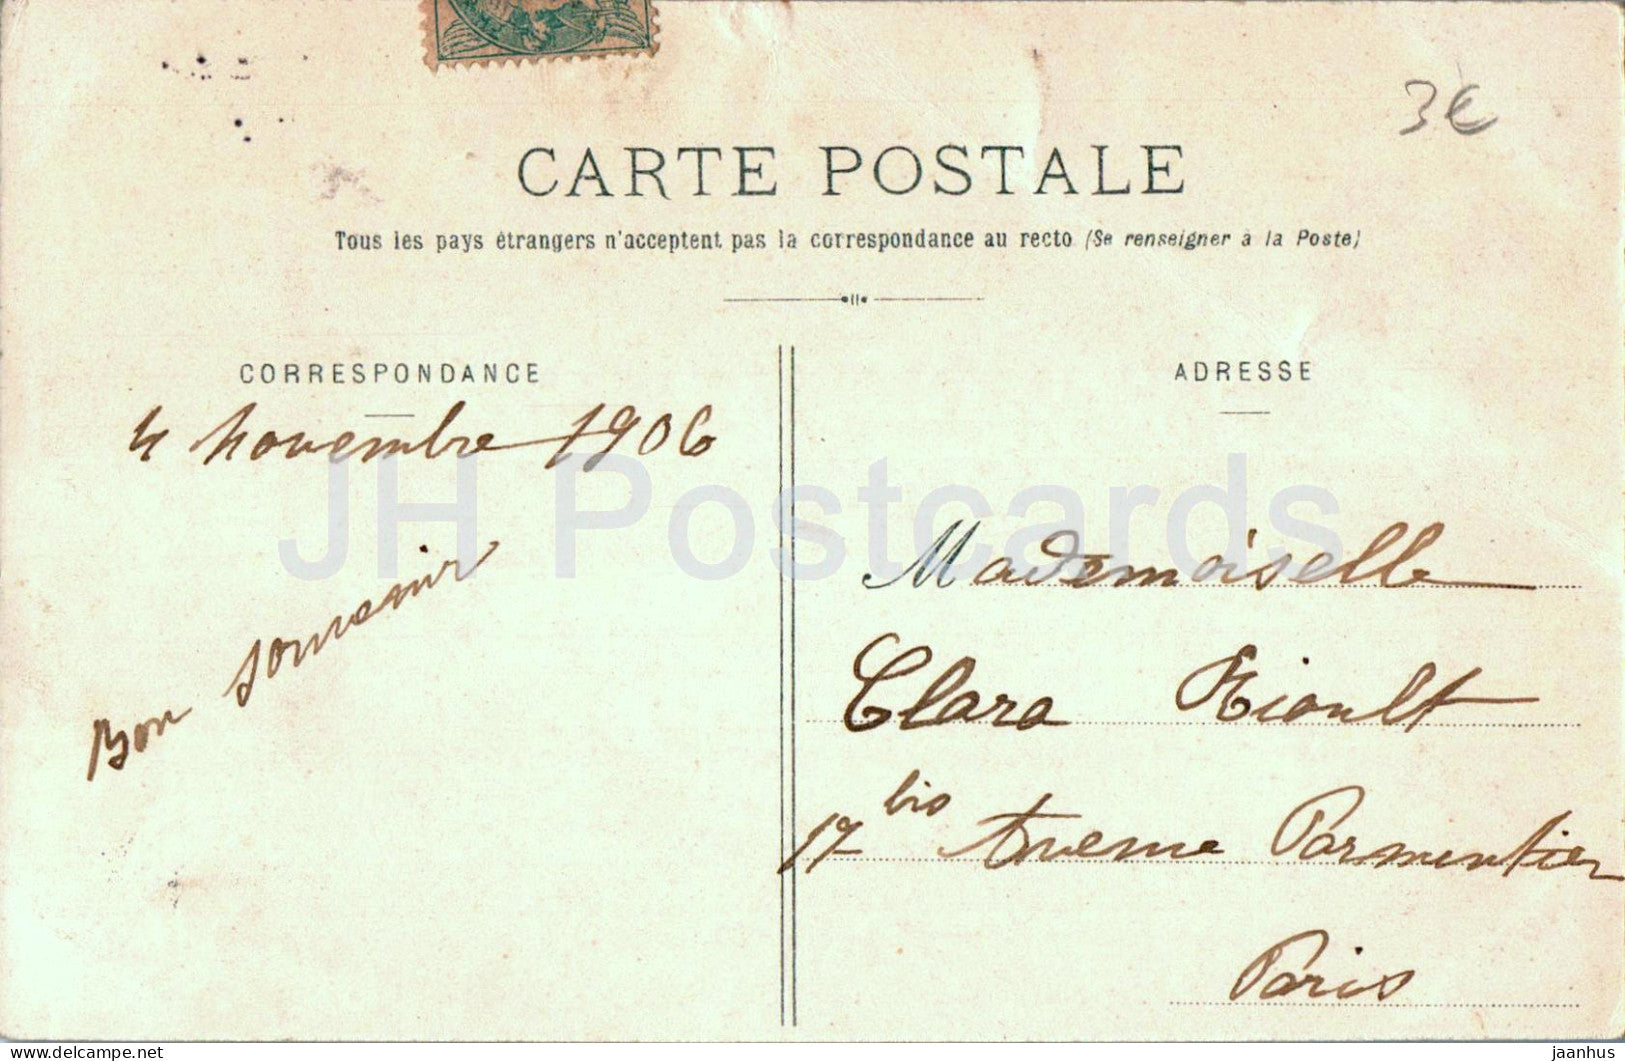 3€
CARTE POSTALE
Tous les pays étrangers n'acceptent pas la correspondance au recto (Se renseigner à la Poste)
CORRESPONDANCE
4 Novembre 1906
Bon souvenir
ADRESSE
Mademoiselle
Clara Rioult
17 bis Avenue Parmentier
Paris
JH Postcards
delcampe.net
jaanhus